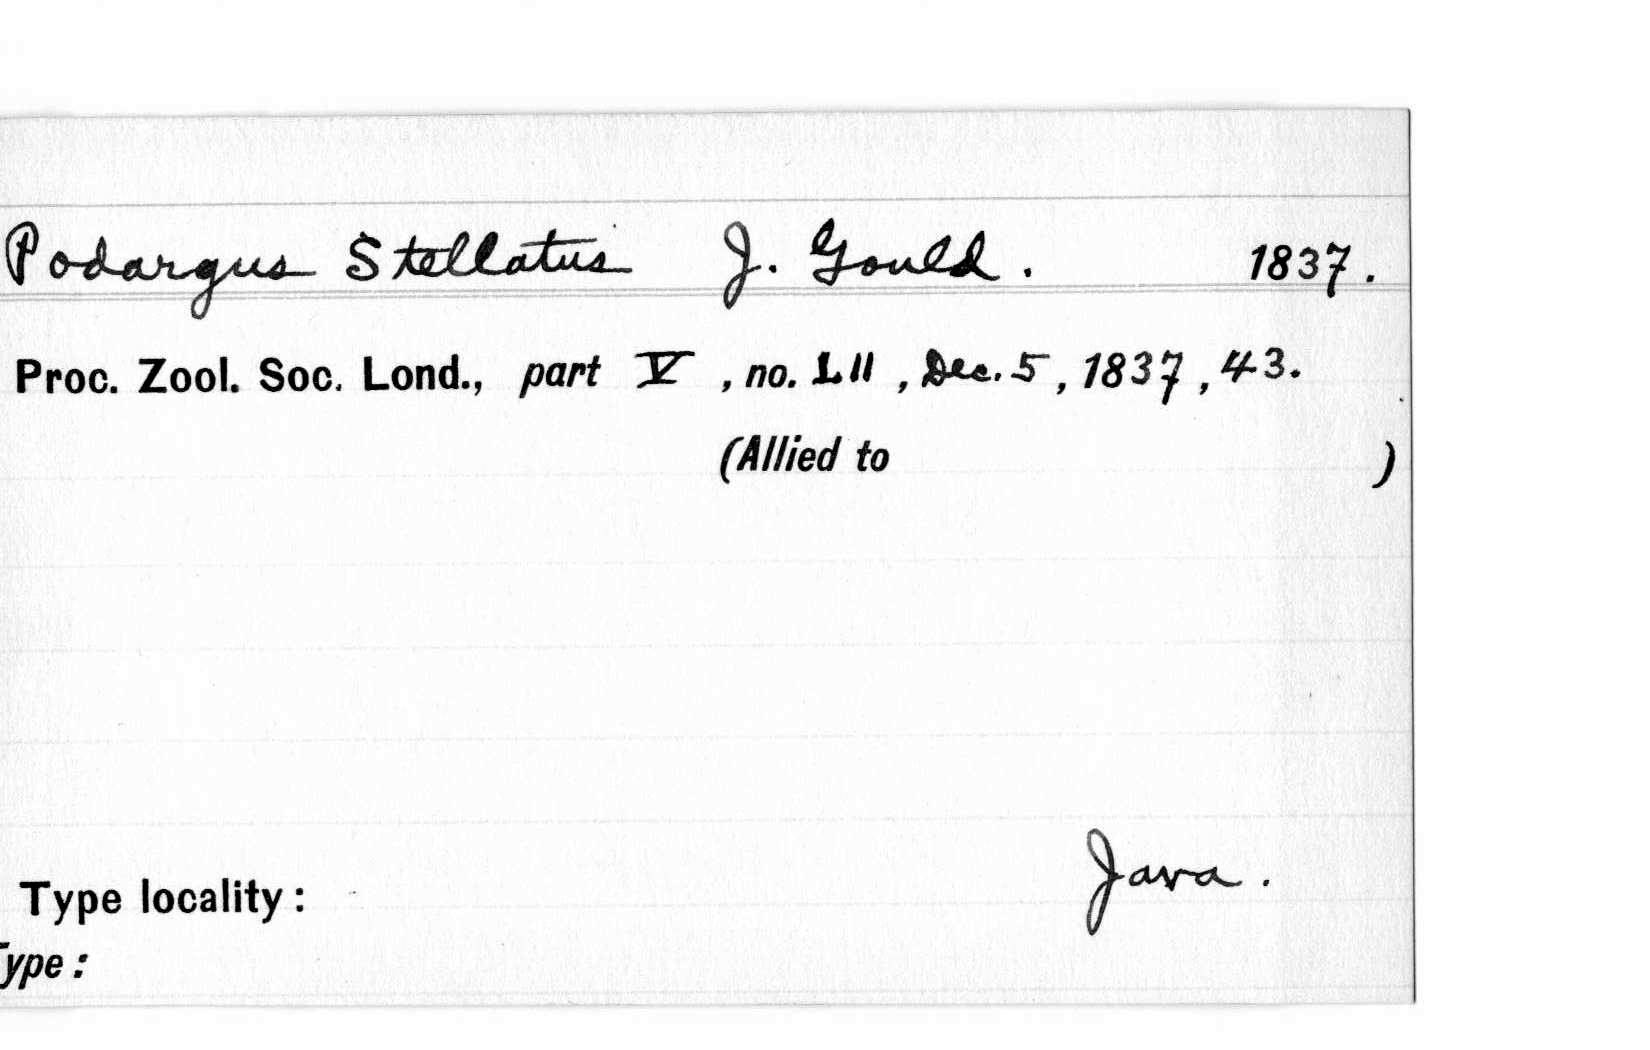 Podargus Stellatus J. Gould. 1837.
Proc. Zool. Soc. Lond., part V, no. LII, Dec. 5, 1837, 43.
(Allied to )
Java.
Type locality:
Type: